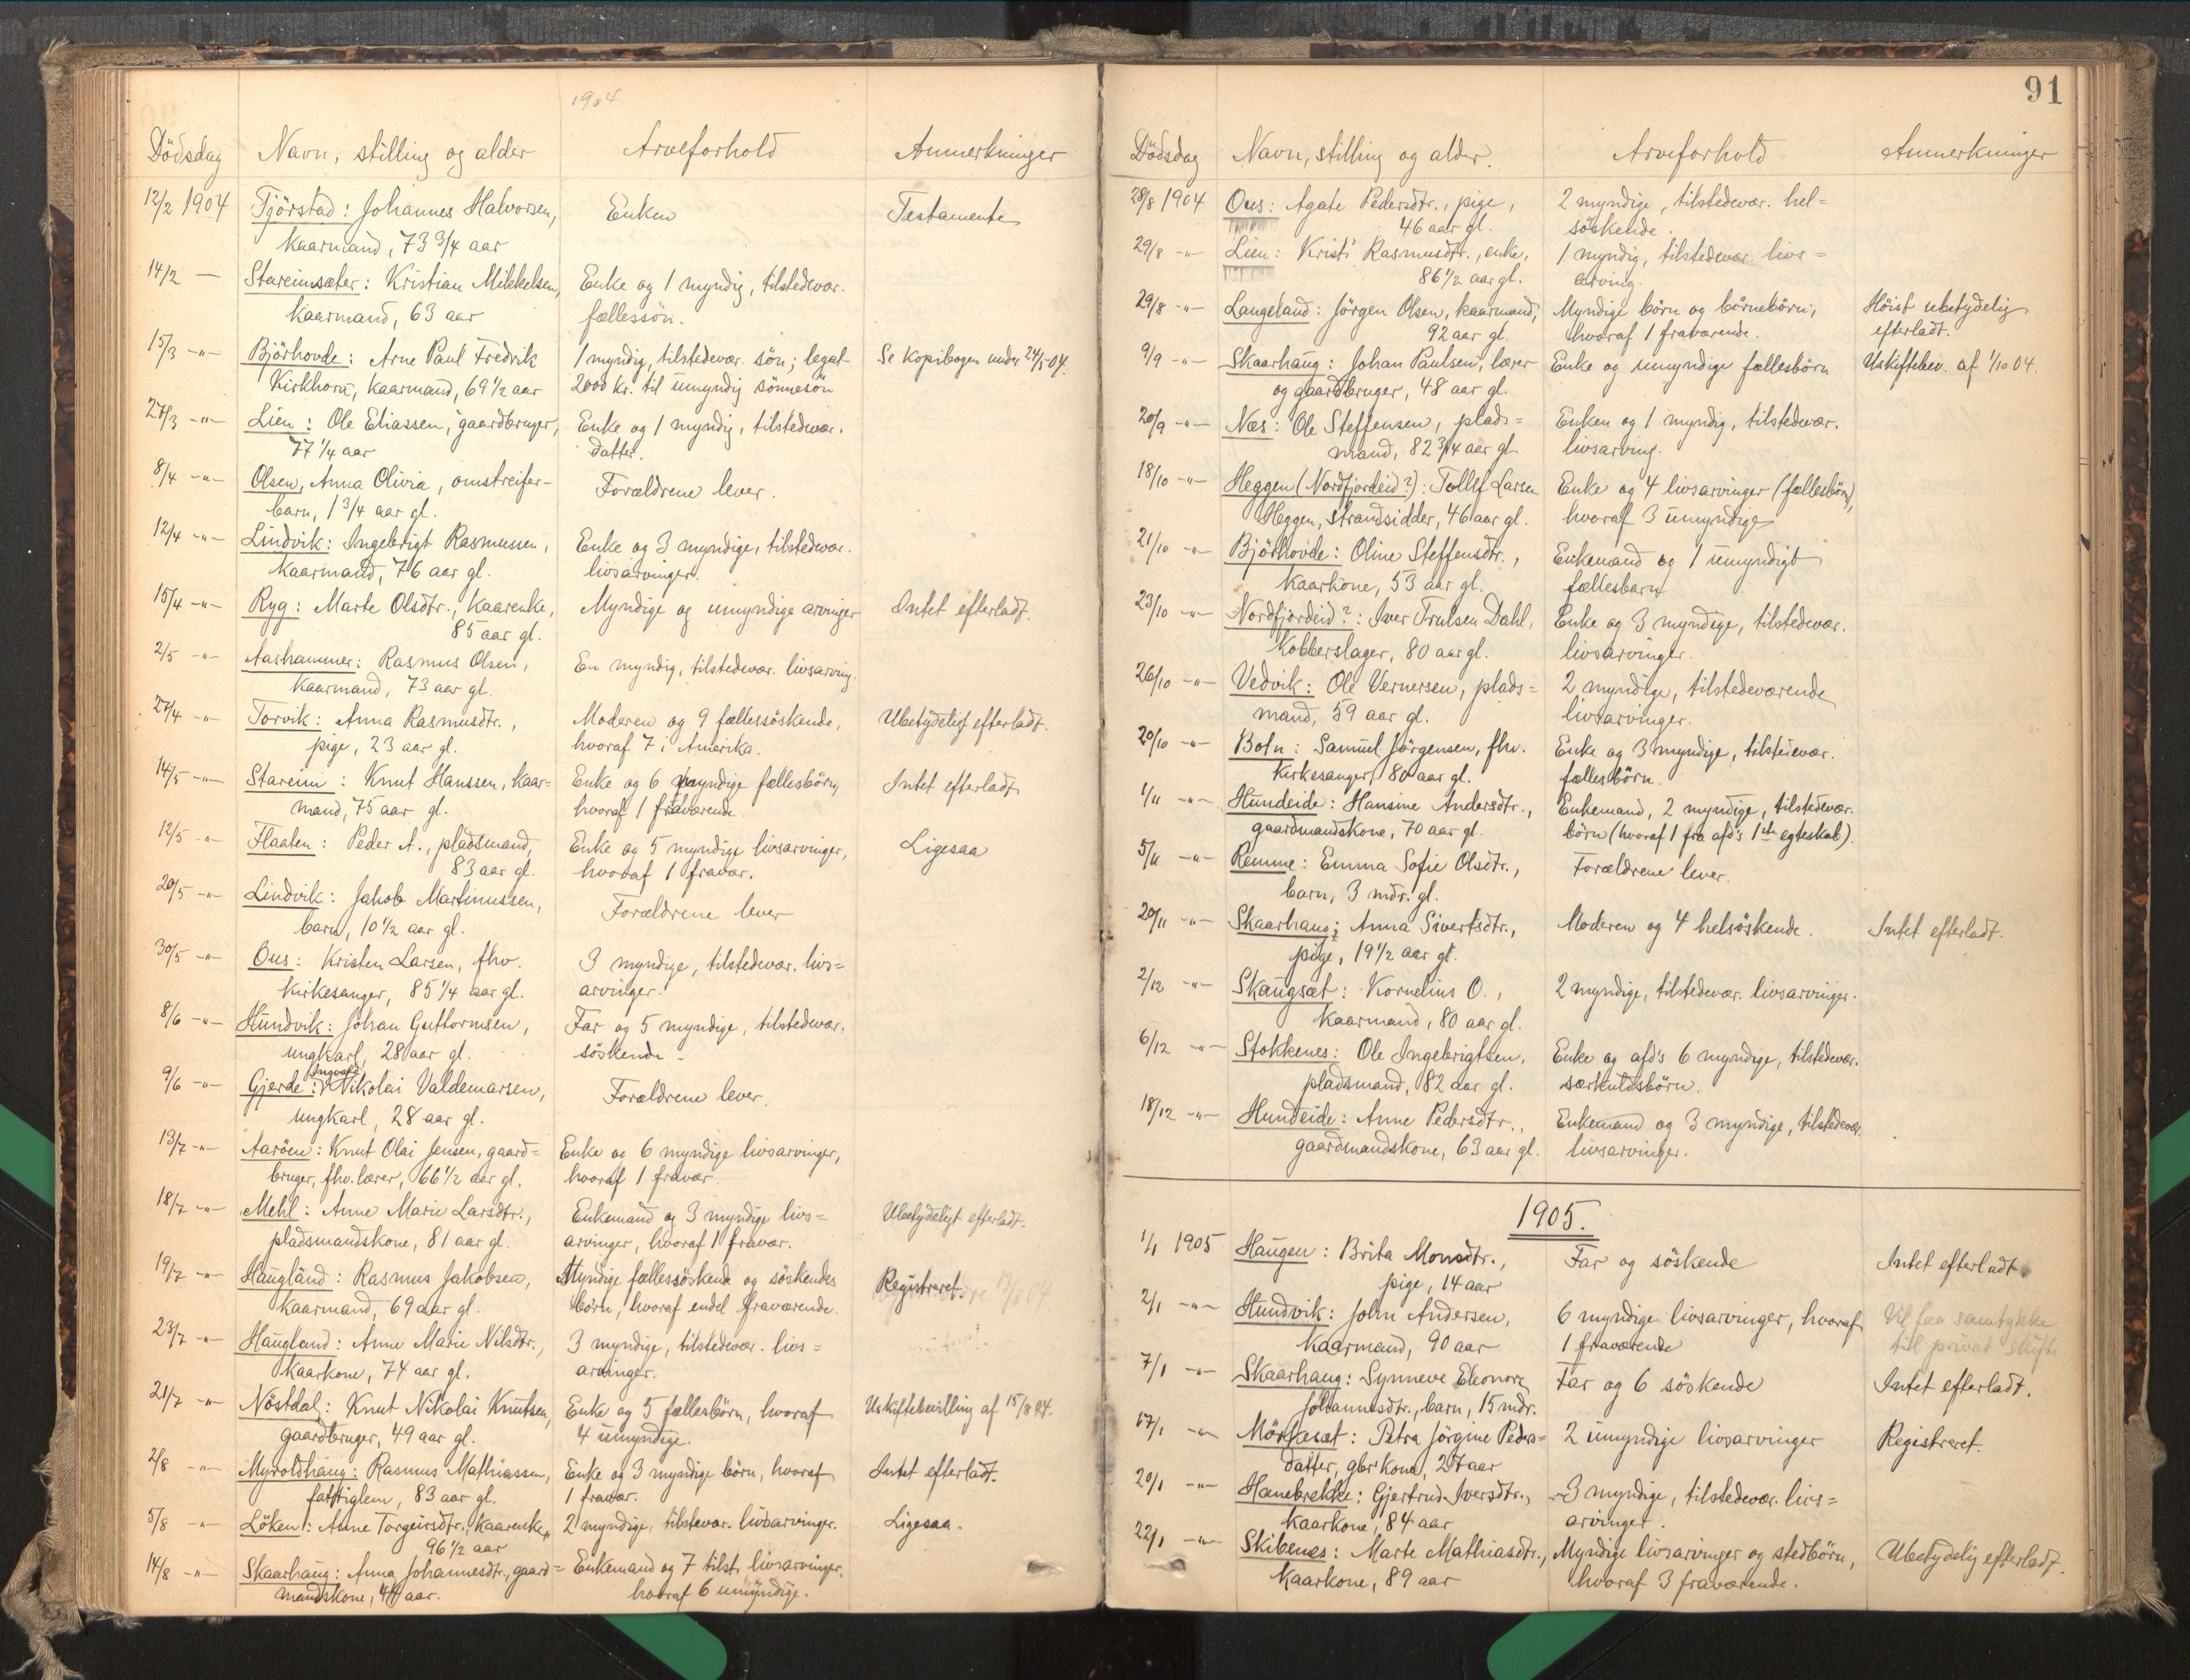 1904
Dödsdag Navn, stilling og alder Arveforhold Anmerkninger
12/2 1904 Tjörstad: Johannes Halvorsen, Enken Testamente
kaarmand, 73 3/4 aar
14/2 — Stareimsæter: Kristian Mikkelsen, Enke og 1 myndig, tilstedevær.
kaarmand, 63 aar fællessön.
15/3 -"- Björhovde: Arne Paul Fredrik 1 myndig, tilstedevær. sön; legat Se kopibogen under 24/5 04.
Kirkhorn, kaarmand, 69 1/2 aar 2000 kr. til umyndig sönnesön
27/3 -"- Lien: Ole Eliassen, gaardbruger, Enke og 1 myndig, tilstedevær.
77 1/4 aar datter.
8/4 -"- Olsen, Anna Olivia, omstreifer- Forældrene lever.
barn, 1 3/4 aar gl.
12/4 -"- Lindvik: Ingebrigt Rasmussen, Enke og 3 myndige, tilstedevær.
kaarmand, 76 aar gl. livsarvinger.
15/4 -"- Ryg: Marte Olsdtr., kaarenke, Myndige og umyndige arvinger Intet efterladt.
85 aar gl.
2/5 -"- Aashammer: Rasmus Olsen, En myndig, tilstedevær. livsarving.
kaarmand, 73 aar gl.
27/4 -"- Torvik: Anna Rasmusdtr., Moderen og 9 fællessöskende, Ubetydelig efterladt.
pige, 23 aar gl. hvoraf 7 i Amerika.
14/5 -"- Stareim: Knut Hanssen, kaar= Enke og 6 myndige fællesbörn, Intet efterladt
mand, 75 aar gl. hvoraf 1 fraværende.
12/5 -"- Flaaten: Peder A., pladsmand, Enke og 5 myndige livsarvinger, Ligesaa
83 aar gl. hvoraf 1 fravær.
20/5 -"- Lindvik: Jakob Martinussen, Forældrene lever
barn, 10 1/2 aar gl.
30/5 -"- Ous: Kristen Larsen, fhv. 3 myndige, tilstedevær. livs=
kirkesanger, 85 1/4 aar gl. arvinger.
8/6 -"- Hundvik: Johan Guttormsen, Far og 5 myndige, tilstedevær.
ungkarl, 28 aar gl. söskende.
Ingvald
9/6 -"- Gjerde: Nikolai Valdemarsen, Forældrene lever.
ungkarl, 28 aar gl.
13/7 -"- Aaröen: Knut Olai Jensen, gaard= Enke og 6 myndige livsarvinger,
bruger, fhv. lærer, 66 1/2 aar gl. hvoraf 1 fravær.
18/7 -"- Mehl: Anne Marie Larsdtr., Enkemand og 3 myndige livs= Ubetydeligt efterladt.
pladsmandskone, 81 aar gl. arvinger, hvoraf 1 fravær.
19/7 -"- Haugland: Rasmus Jakobsen, Myndige fællessöskende og söskendes Registreret.
kaarmand, 69 aar gl. börn, hvoraf endel fraværende.
23/7 -"- Haugland: Anne Marie Nilsdtr., 3 myndige, tilstedevær. livs=
kaarkone, 74 aar gl. arvinger.
21/7 -"- Nöstdal: Knut Nikolai Knutsen, Enke og 5 fællesbörn, hvoraf Uskiftebevilling af 15/8 04.
gaardbruger, 49 aar gl. 4 umyndige.
2/8 -"- Myroldhaug: Rasmus Mathiassen, Enke og 3 myndige börn, hvoraf Intet efterladt.
fattiglem, 83 aar gl. 1 fravær.
5/8 -"- Löken: Anne Torgeirsdtr., kaarenke, 2 myndige, tilstevær. livsarvinger. Ligesaa.
96 1/2 aar
14/8 -"- Skaarhaug: Anna Johannesdtr., gaard= Enkemand og 7 tilst. livsarvinger,
mandskone, 44 aar. hvoraf 6 umyndige.
91
Dödsdag Navn, stilling og alder. Arveforhold Anmerkninger
28/8 1904 Ous: Agate Pedersdtr., pige, 2 myndige, tilstedevær. hel=
46 aar gl. söskende.
29/8 -"- Lien: Kristi Rasmusdtr., enke, 1 myndig, tilstedevær. livs=
86 1/2 aar gl. arving.
29/8 -"- Langeland: Jörgen Olsen, kaarmand, Myndige börn og börnebörn, Höist ubetydelig
92 aar gl. hvoraf 1 fraværende. efterladt.
9/9 -"- Skaarhaug: Johan Paulsen, lærer Enke og umyndige fællesbörn Uskiftebev. af 1/10 04.
og gaardbruger, 48 aar gl.
20/9 -"- Næs: Ole Steffensen, plads= Enken og 1 myndig, tilstedevær.
mand, 82 3/4 aar gl. livsarving.
18/10 -"- Heggen (Nordfjordeid?): Tollef Larsen Enke og 4 livsarvinger (fællesbörn),
Heggen, strandsidder, 46 aar gl. hvoraf 3 umyndige
21/10 -"- Björhovde: Oline Steffensdtr., Enkemand og 1 umyndigt
kaarkone, 53 aar gl. fællesbarn
23/10 -"- Nordfjordeid?: Iver Trulsen Dahl, Enke og 3 myndige, tilstedevær.
kobberslager, 80 aar gl. livsarvinger.
26/10 -"- Vedvik: Ole Vernersen, plads= 2 myndige, tilstedeværende
mand, 59 aar gl. livsarvinger.
20/10 -"- Botn: Samuel Jörgensen, fhv. Enke og 3 myndige, tilstedevær.
kirkesanger, 80 aar gl. fællesbörn.
1/11 -"- Hundeide: Hansine Andersdtr., Enkemand, 2 myndige, tilstedevær.
gaardmandskone, 70 aar gl. börn (hvoraf 1 fra afd's 1ste egteskab).
5/11 -"- Remme: Emma Sofie Olsdtr., Forældrene lever.
barn, 3 mdr. gl.
20/11 -"- Skaarhaug: Anna Sivertsdtr., Moderen og 4 helsöskende. Intet efterladt.
pige, 19 1/2 aar gl.
2/12 -"- Skaugsæt: Kornelius O., 2 myndige, tilstedevær. livsarvinger.
kaarmand, 80 aar gl.
6/12 -"- Stokkenes: Ole Ingebrigtsen, Enke og afd's 6 myndige, tilstedevær.
pladsmand, 82 aar gl. særkuldsbörn.
18/12 -"- Hundeide: Anne Pedersdtr., Enkemand og 3 myndige, tilstedevær.
gaardmandskone, 63 aar gl. livsarvinger.
1905.
1/1 1905 Haugen: Brita Monsdtr., Far og söskende Intet efterladt.
pige, 14 aar
2/1 -"- Hundvik: John Andersen, 6 myndige livsarvinger, hvoraf Vil faa samtykke
kaarmand, 90 aar 1 fraværende til privat skifte
7/1 -"- Skaarhaug: Synneve Eleonore Far og 6 söskende Intet efterladt.
Johannesdtr., barn, 15 mdr.
17/1 -"- Mörkesæt: Petra Jörgine Peders= 2 umyndige livsarvinger Registreret.
datter, gbr' kone, 27 aar
20/1 -"- Hanebrekke: Gjertrud Iversdtr., 3 myndige, tilstedevær. livs=
kaarkone, 84 aar arvinger.
22/1 -"- Skibenes: Marte Mathiasdtr., Myndige livsarvinger og stedbörn, Ubetydelig efterladt.
kaarkone, 89 aar hvoraf 3 fraværende.